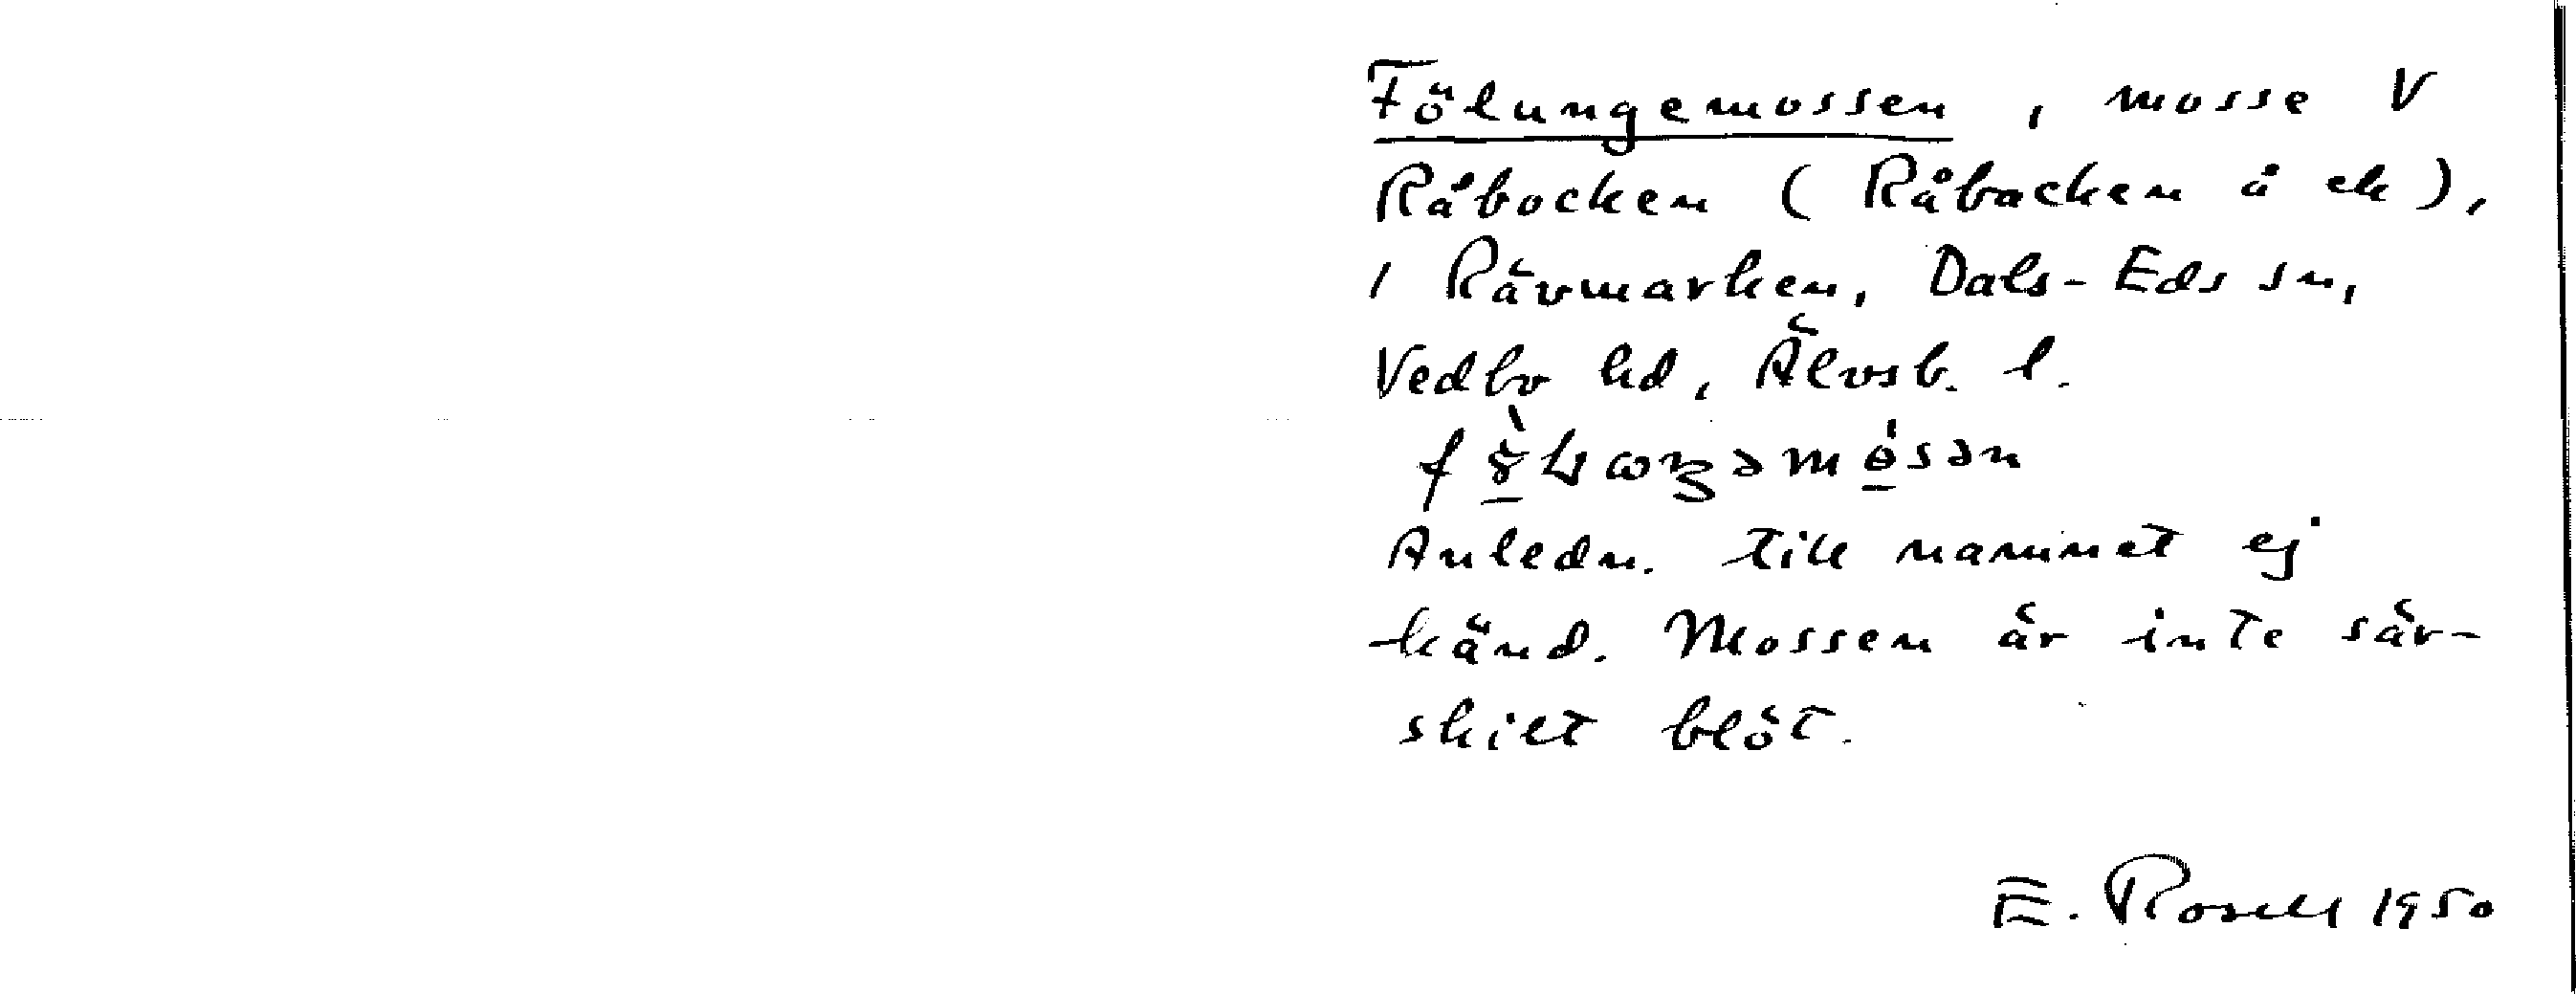 Fölungemossen, mosse V
Råbocken (Råbacken å ek),
i Rävmarken, Dals-Eds sn,
Vedbo hd, Älvsb. l.
Anledn. till namnet ej
känd. Mossen är inte sär-
skilt blöt.
E. Rosell 1950